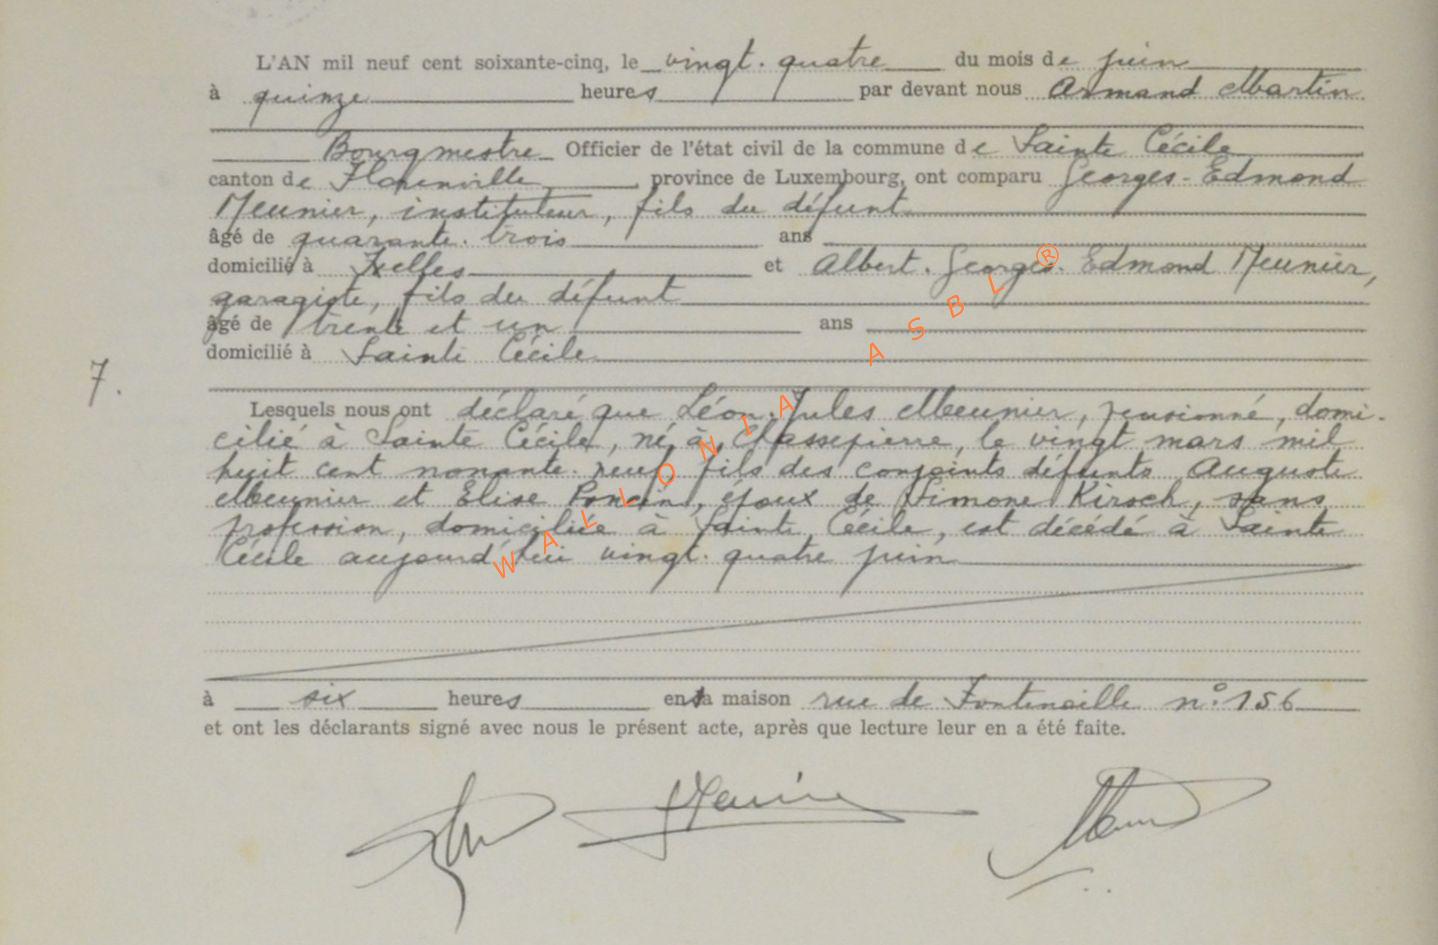 L'AN mil neuf cent soixante-cinq, le vingt-quatre du mois de juin
à quinze heures par devant nous Armand Martin
Bourgmestre Officier de l'état civil de la commune de Sainte Cécile
canton de Florenville, province de Luxembourg, ont comparu Georges-Edmond
Meunier, instituteur, fils du défunt
âgé de quarante-trois ans
domicilié à Ixelles et Albert-Georges-Edmond Meunier,
garagiste, fils du défunt
âgé de trente et un ans
domicilié à Sainte Cécile
7.
Lesquels nous ont déclaré que Léon-Jules Meunier, pensionné, domi-
cilié à Sainte Cécile, né à Chassepierre, le vingt mars mil
huit cent nonante-neuf, fils des conjoints défunts Auguste
Meunier et Elise Poncin, époux de Simone Kirsch, sans
profession, domiciliée à Sainte Cécile, est décédé à Sainte
Cécile aujourd'hui vingt-quatre juin
à six heures en sa maison rue de Fontenoille n° 156
et ont les déclarants signé avec nous le présent acte, après que lecture leur en a été faite.
WALLONIA ASBL ®